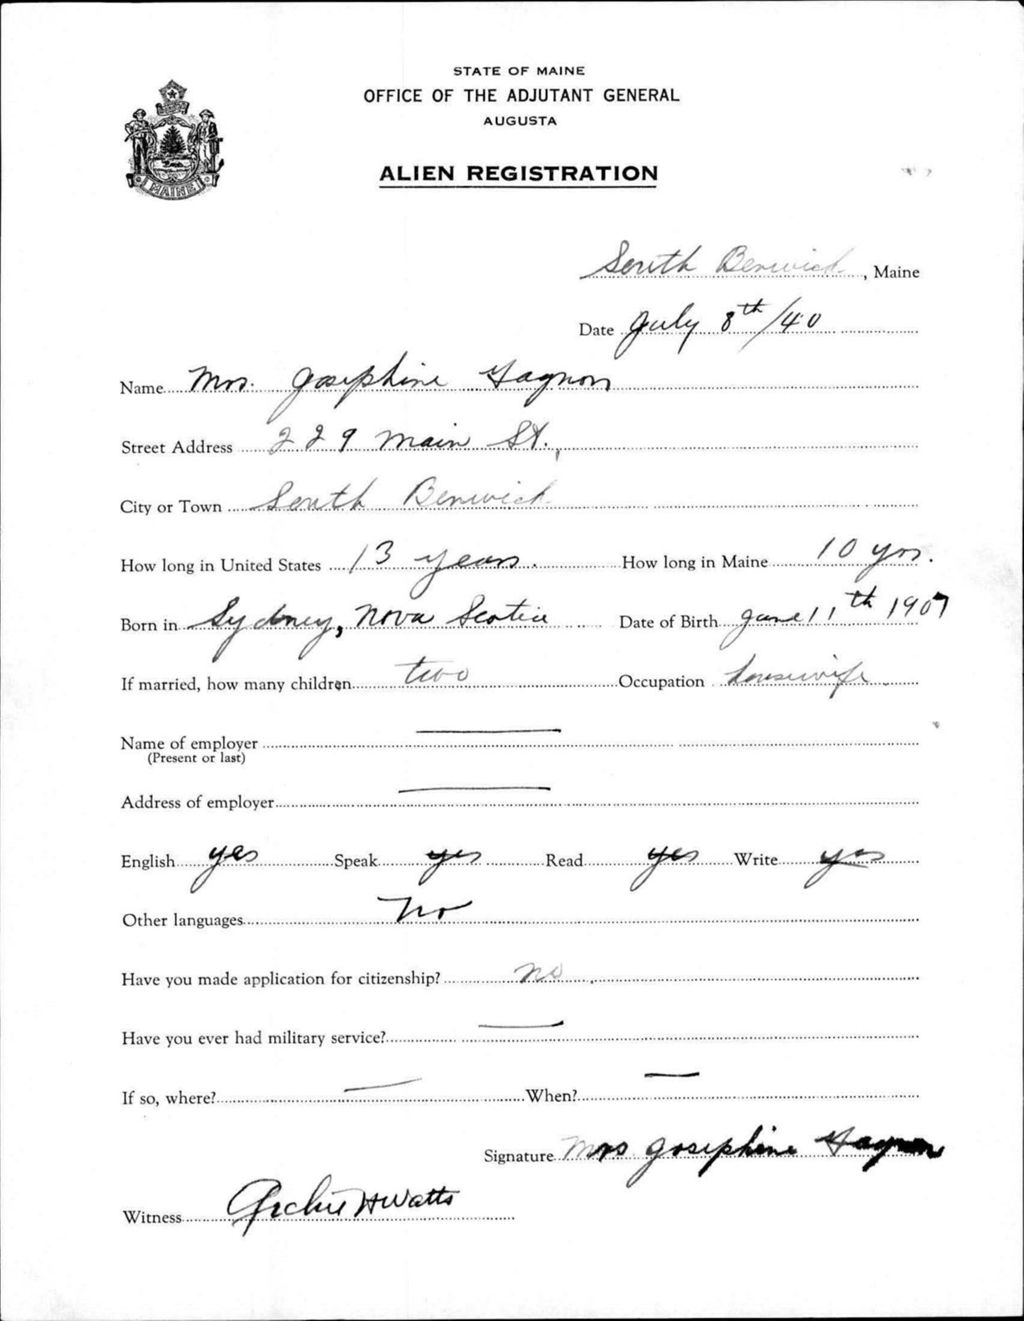 STATE OF MAINE
OFFICE OF THE ADJUTANT GENERAL
AUGUSTA
ALIEN REGISTRATION
MAINE
South Berwick, Maine
Date July 8th/40
Name Mrs. Josephine Gagnon
Street Address 229 Main St.,
City or Town South Berwick
How long in United States 13 years. How long in Maine 10 yrs.
Born in Sydney, Nova Scotia Date of Birth June 11th 1907
If married, how many children two Occupation housewife
Name of employer —
(Present or last)
Address of employer —
English yes Speak yes Read yes Write yes
Other languages No
Have you made application for citizenship? no
Have you ever had military service? —
If so, where? — When? —
Signature Mrs Josephine Gagnon
Witness Archie H Watts